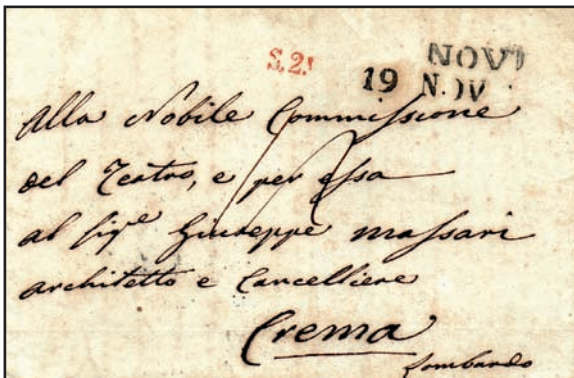 S.2.
NOVI
19 NOV
Alla Nobile Commissione
del Teatro, e per essa
al Sig.e Giuseppe Massari
architetto e Cancelliere
Crema
Lombardo